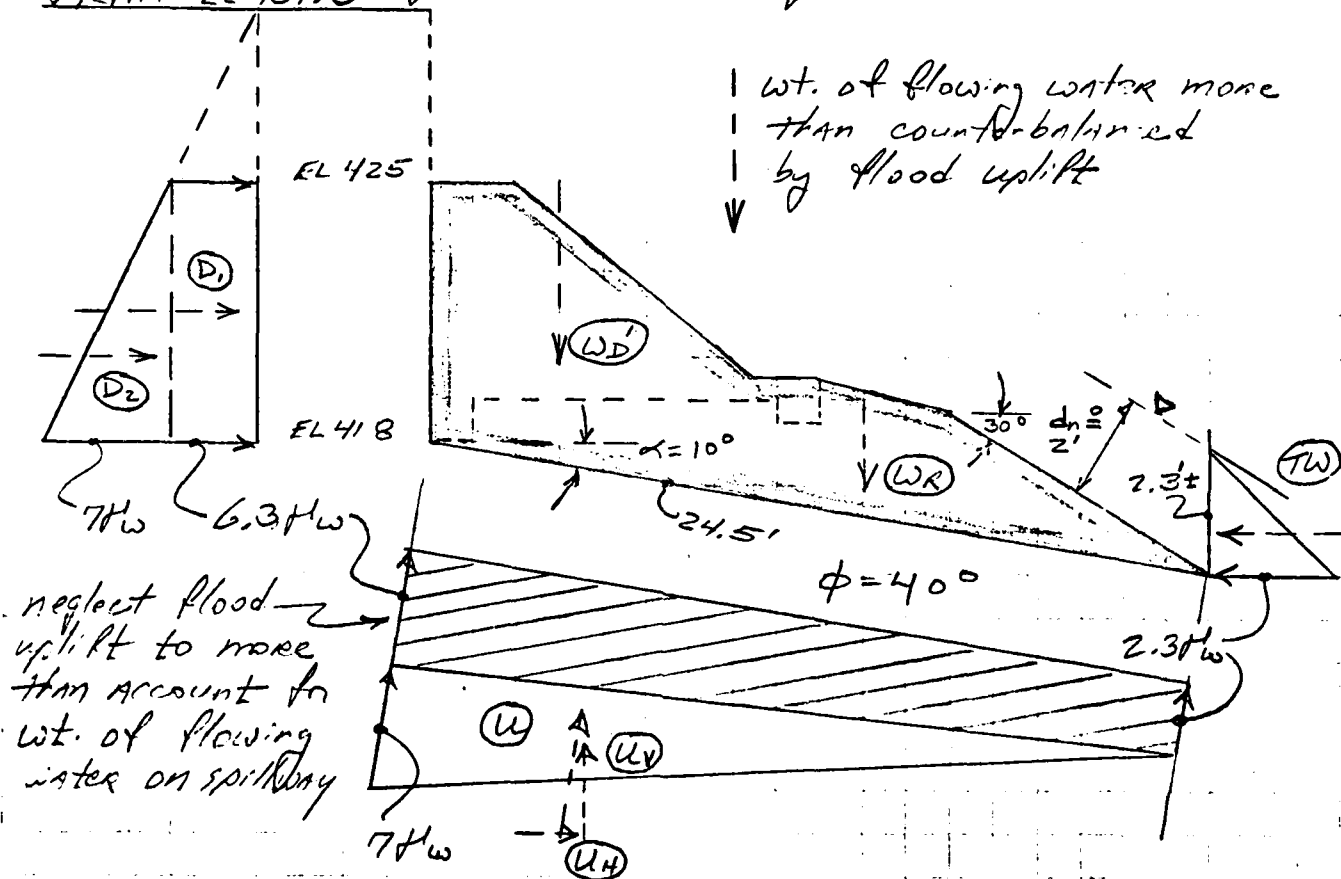 wt. of flowing water more
than counter-balanced
by flood uplift
EL 425
D1
WD'
D2
EL 418
α = 10°
WR
30°
dn ≅
2'
TW
2.3'±
7γw
6.3γw
24.5'
φ = 40°
neglect flood
uplift to more
than account for
wt. of flowing
water on spillway
2.3γw
U
UV
7γw
UH